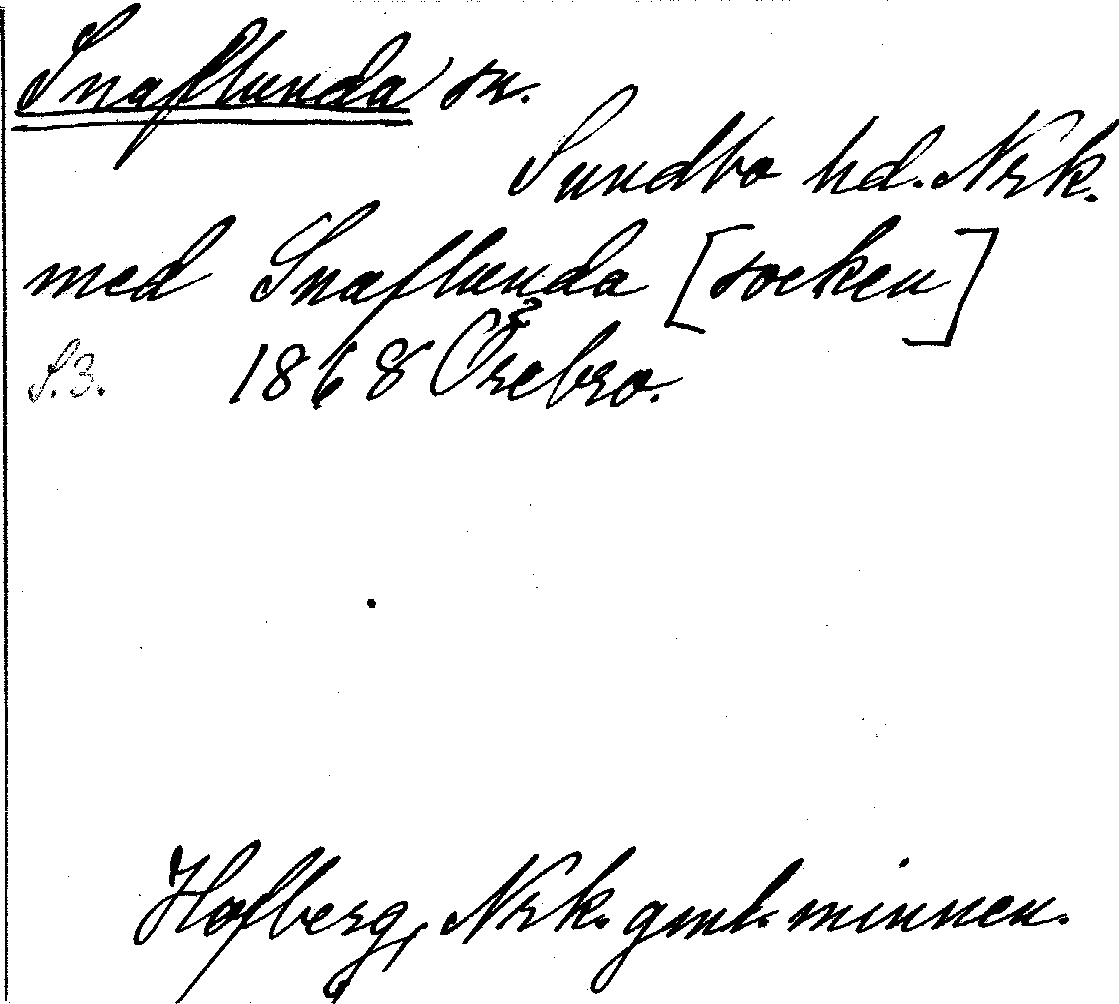 Snaflunda sn.
Sundbo hd. Nrk.
med Snaflunda [socken]
S.3. 1868 Örebro.
Hofberg, Nrk. gml. minnen.